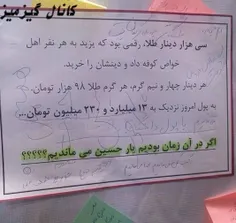 کانال گیزمیز
سی هزار دینار طلا، رقمی بود که یزید به هر نفر اهل
خواص کوفه داد و دینشان را خرید.
هر دینار چهار و نیم گرم، هر گرم طلا ۹۸ هزار تومان.
به پول امروز نزدیک به ۱۳ میلیارد و ۲۳۰ میلیون تومان...
اگر در آن زمان بودیم یار حسین می ماندیم؟؟؟؟؟